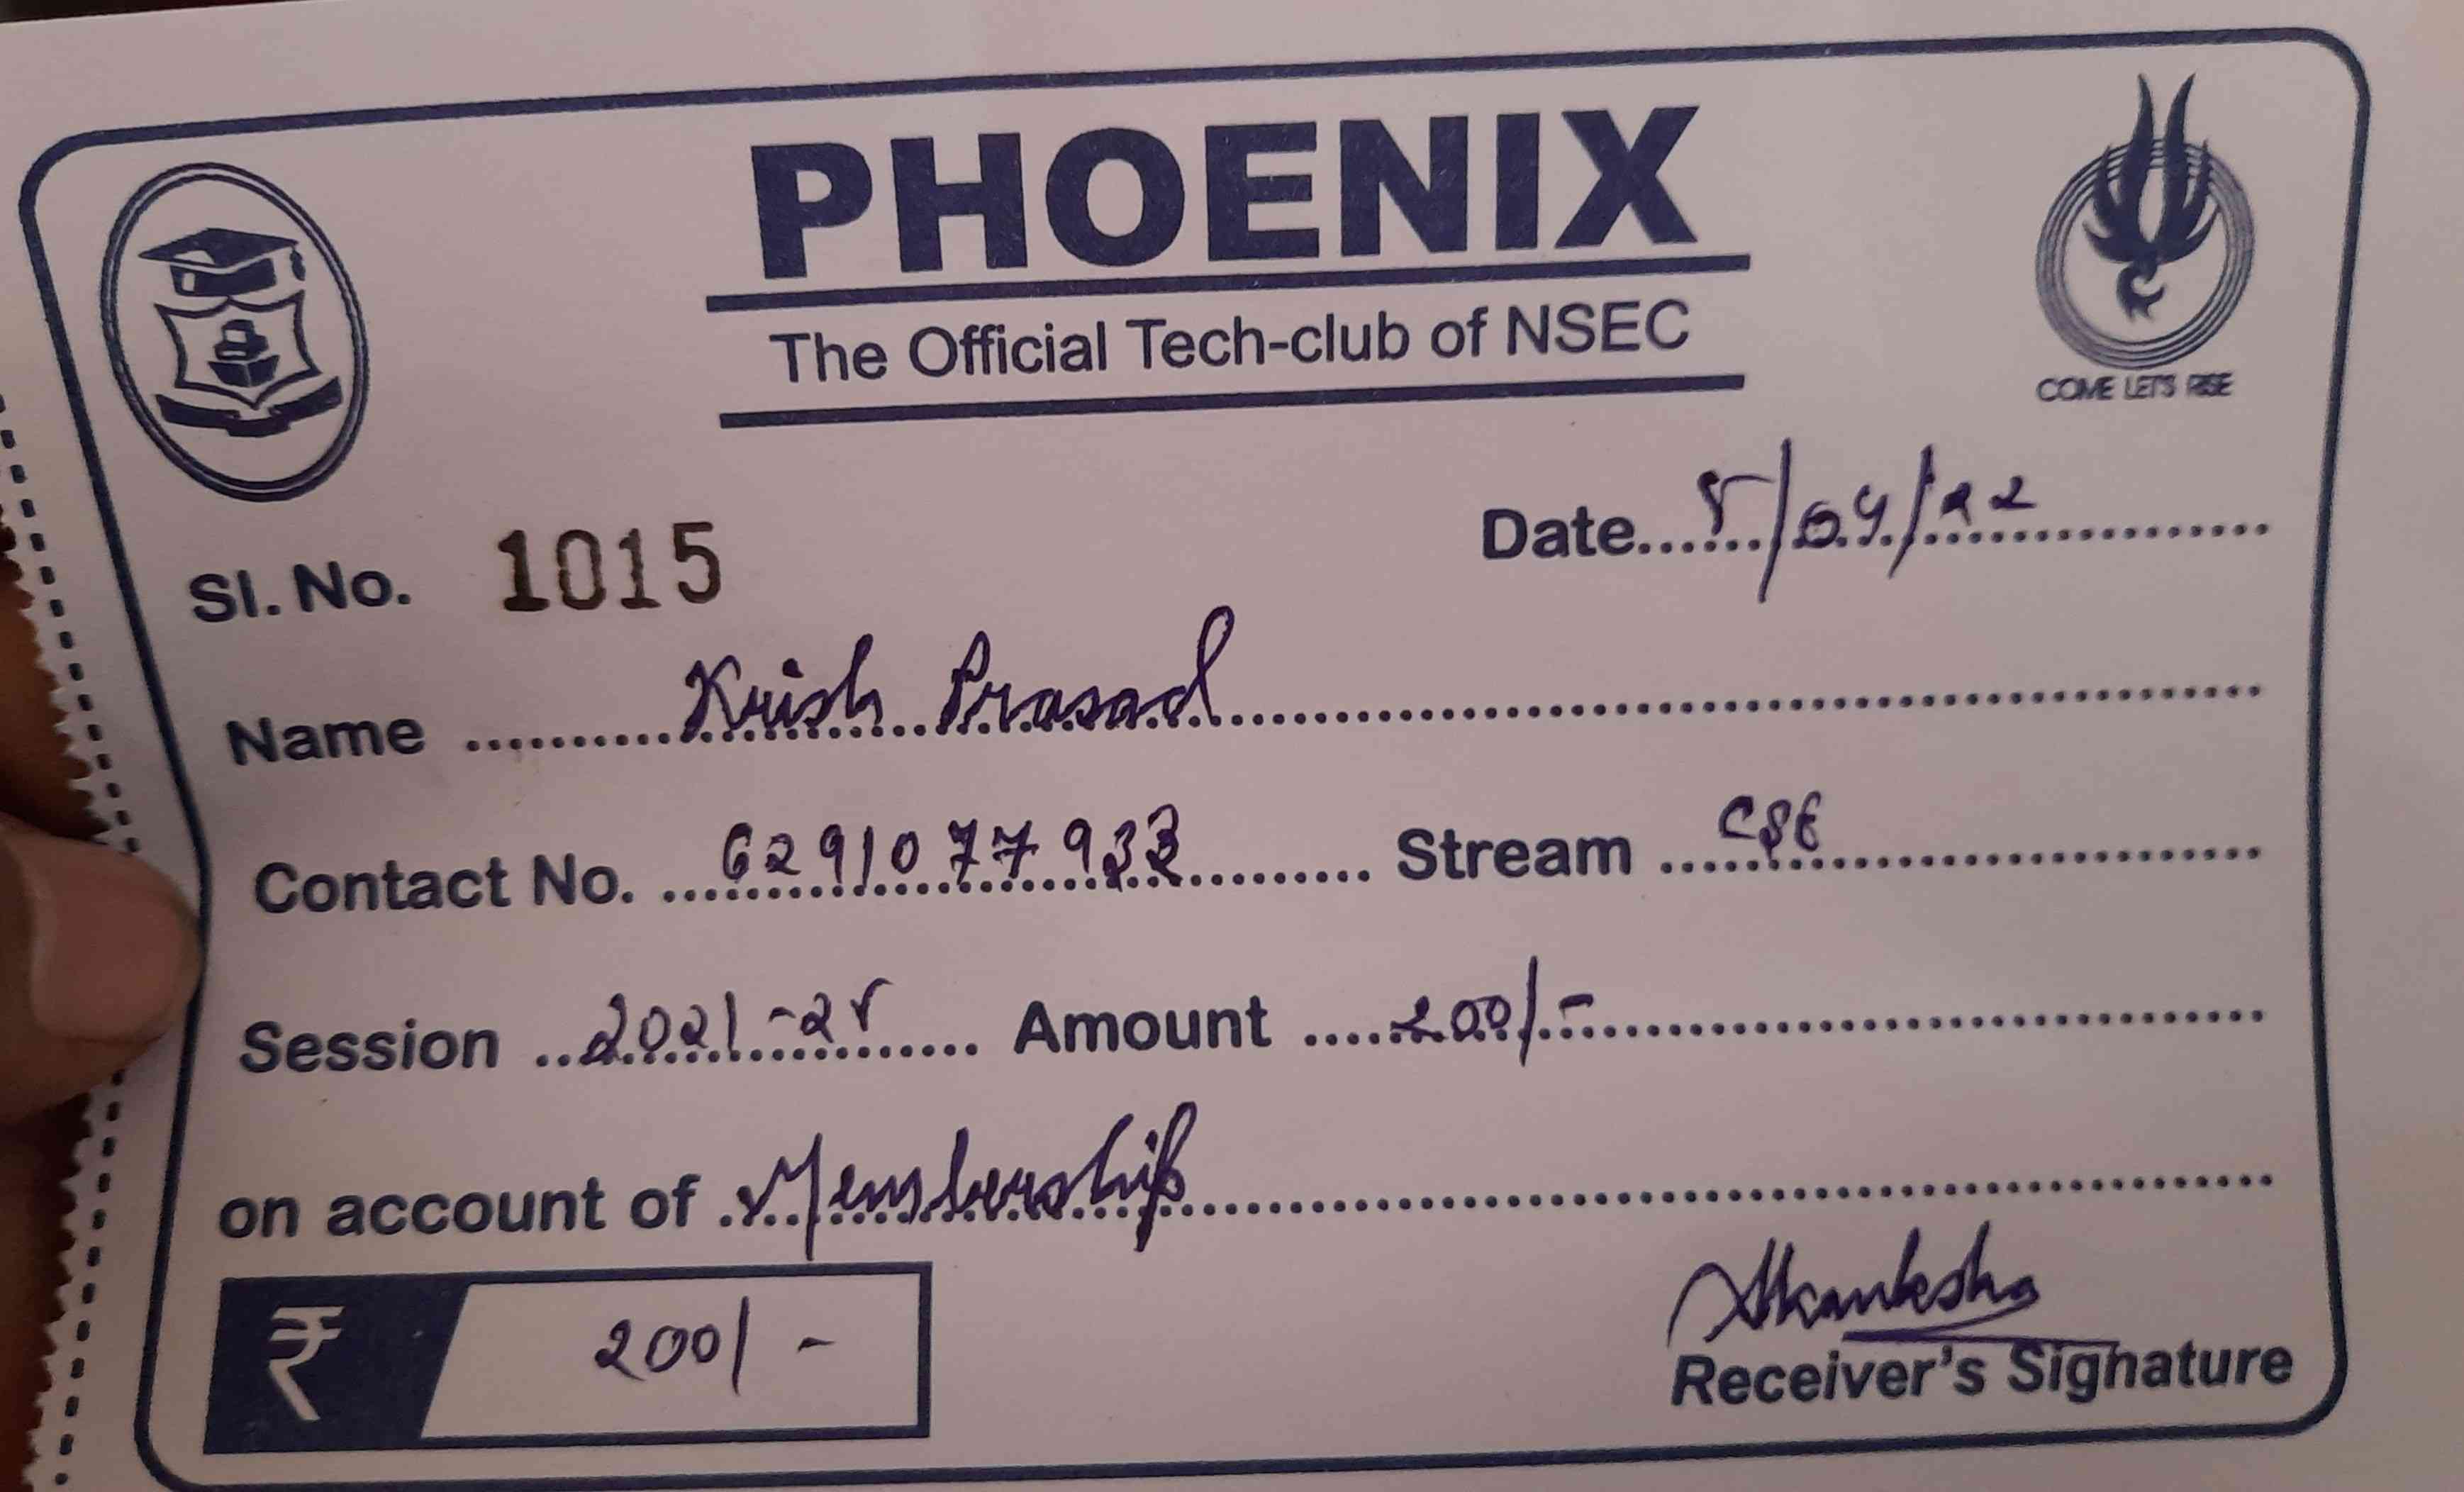 PHOENIX
The Official Tech-club of NSEC
COME LET'S RISE
Sl. No. 1015
Date 5/04/22
Name Krish Prasad
Contact No. 6291077933 Stream CSE
Session 2021-25 Amount 200/-
on account of Membership
₹ 200/-
Akanksha
Receiver's Signature